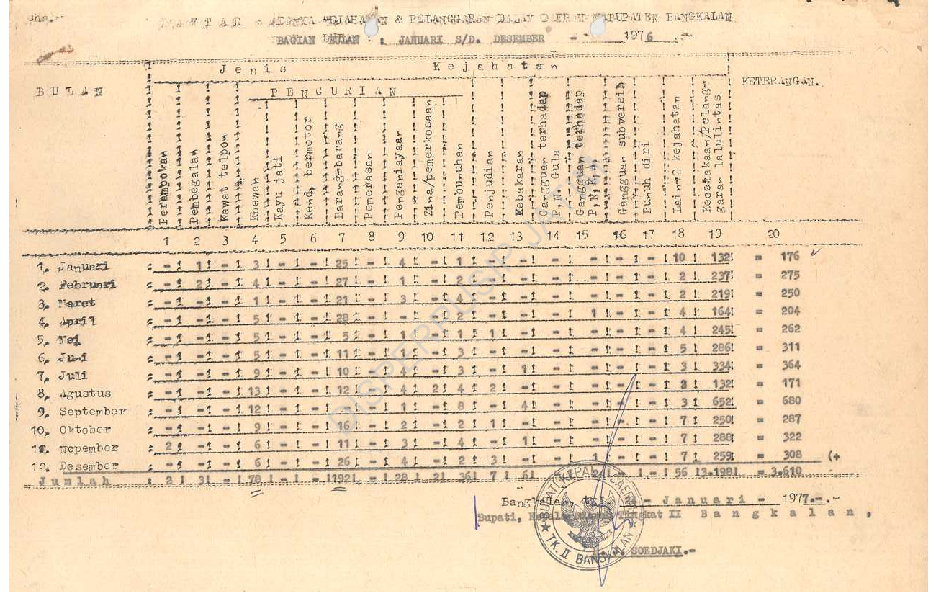 DAFTAR - ADANYA KEJAHATAN & PELANGGARAN DALAM DAERAH KABUPATEN BANGKALAN
BAGIAN BULAN : JANUARI S/D. DESEMBER - - 1976 .-
BULAN
Jenis Kejahatan
PENCURIAN
KETERANGAN.
Perampokan
Pembegalan
Kawat telpon
Hewan
Kayu jati
Kend. bermotor
Barang-barang
Pemerasan
Penganiayaan
Zina/pemerkosaan
Pembunuhan
Penjudian
Kebakaran
Gangguan terhadap P.N. Gula
Gangguan terhadap
Gangguan subversib
Bunuh diri
Lain2 kejahatan
Kecelakaan/Pelanggaran lalulintas
1 2 3 4 5 6 7 8 9 10 11 12 13 14 15 16 17 18 19 20
1. Januari : - 1 - 3 - - 25 - 4 - 1 - - - - - - 10 132 = 176
2. Pebruari : - 2 - 4 - - 27 - 1 - 2 - - - - - - 2 237 = 275
3. Maret : - - - 1 - - 21 - 3 - 4 - - - - - - 2 219 = 250
4. April : - - - 5 - - 28 - - - 2 - - - 1 - - 4 164 = 204
5. Mei : - - - 5 - - 5 - 1 - 1 1 - - - - - 4 245 = 262
6. Juni : - - - 5 - - 11 - 1 - 3 - - - - - - 5 286 = 311
7. Juli : - - - 9 - - 10 - 4 - 3 - 1 - - - - 3 334 = 364
8. Agustus : - - - 13 - - 12 - 4 2 4 2 - - - - - 2 132 = 171
9. September : - - - 12 - - - - 1 - 8 - 4 - - - - 3 652 = 680
10. Oktober : - - - 9 - - 16 - 2 - 2 1 - - - - - 7 250 = 287
11. Nopember : 2 - - 6 - - 11 - 3 - 4 - 1 - - - - 7 288 = 322
12. Desember : - - - 6 - - 26 - 4 - 2 3 - - 1 - - 7 259 = 308 (+
Jumlah : 2 3 - 78 - - 192 - 28 2 36 7 6 - 2 - - 56 3.198 = 3.610
Bangkalan, - Januari - 1977.-.-
Bupati, Kepala Daerah Tingkat II Bangkalan,
BUPATI KEPALA DAERAH
TK. II BANGKALAN
SOEDJAKI.-